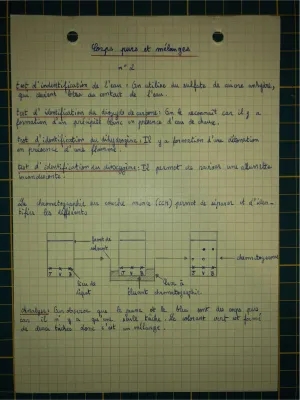 Corps purs et mélanges
n°2
test d'indentification de l'eau : On utilise du sulfate de cuivre anhydre,
qui devient bleu au contact de l'eau.
test d'identification du dioxyde de carbone : On le reconnait car il y a
formation d'un précipité blanc en présence d'eau de chaux.
test d'identification du dihydrogène : Il y a formation d'une détonation
en présence d'une flamme.
test d'identification du dioxygène : Il permet de raviver une allumette
incandescente.
La chromatographie sur couche mince (CCM) permet de séparer et d'iden-
tifier les différents
front de
solvant
J V B
J V B
J V B
chromatogramme
cuve à
éluant chromatographie
Analyse : On observe que le jaune et le bleu sont des corps purs
car il n'y a qu'une seule tâche. Le colorant vert est formé
de deux tâches donc c'est un mélange.